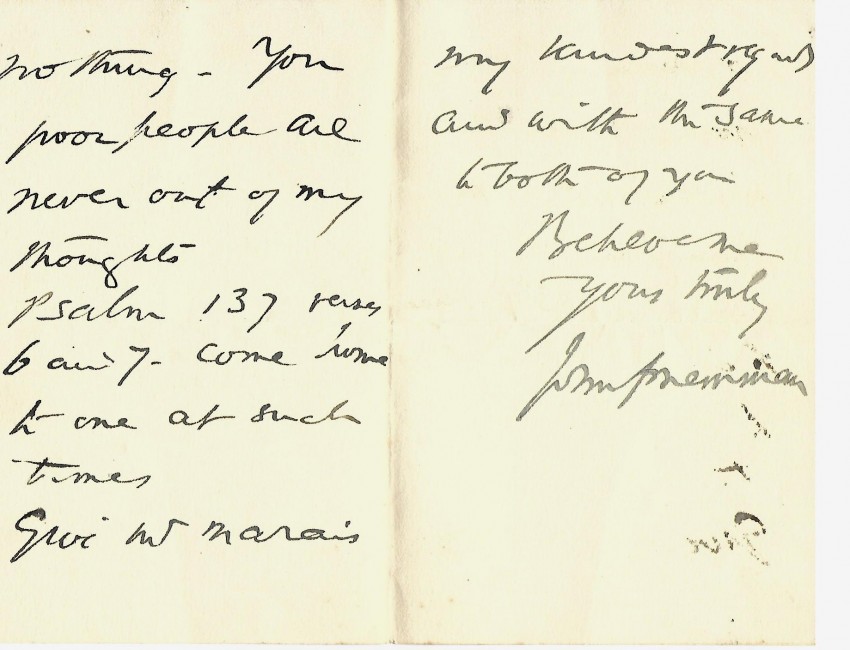 nothing - You
poor people are
never out of my
thoughts
Psalm 137 verses
6 and 7 - come home
to one at such
times
Give Mr Marais
my kindest regards
and with the same
to both of you
Believe me
Yours truly
John